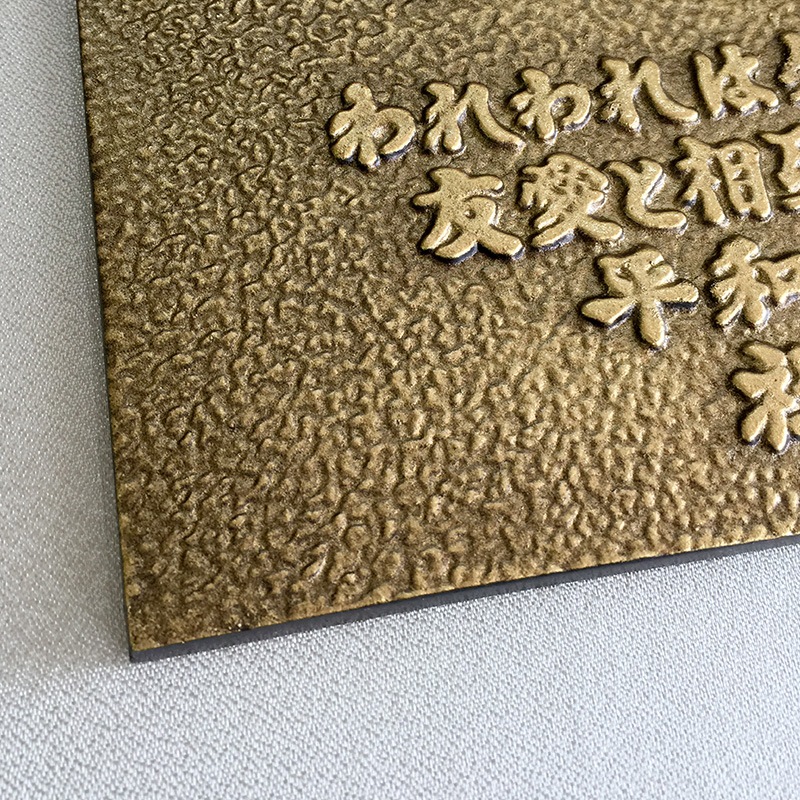 われわれは
友愛と相
平和